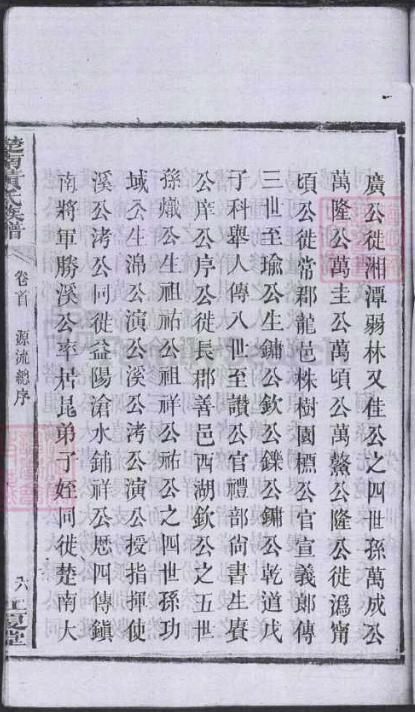 廣公徙湘潭弱林又佳公之四世孫萬成公
萬隆公萬圭公萬頃公萬鰲公隆公徙溈甯
頃公徙常郡龍邑株樹園標公官宣義郎傳
三世至瑜公生鏞公欽公鑠公鏞公乾道戊
子科舉人傳八世至讚公官禮部尚書生賡
公庠公序公徙長郡善邑西湖欽公之五世
孫熾公生祖祐公祖祥公祐公之四世孫功
域公生湯公演公溪公洘公演公授指揮使
溪公洘公同徙益陽滄水鋪祥公歷四傳鎮
南將軍勝溪公率昆弟子姪同徙楚南大
楚南黃氏族譜
卷首 源流總序
六 江夏堂